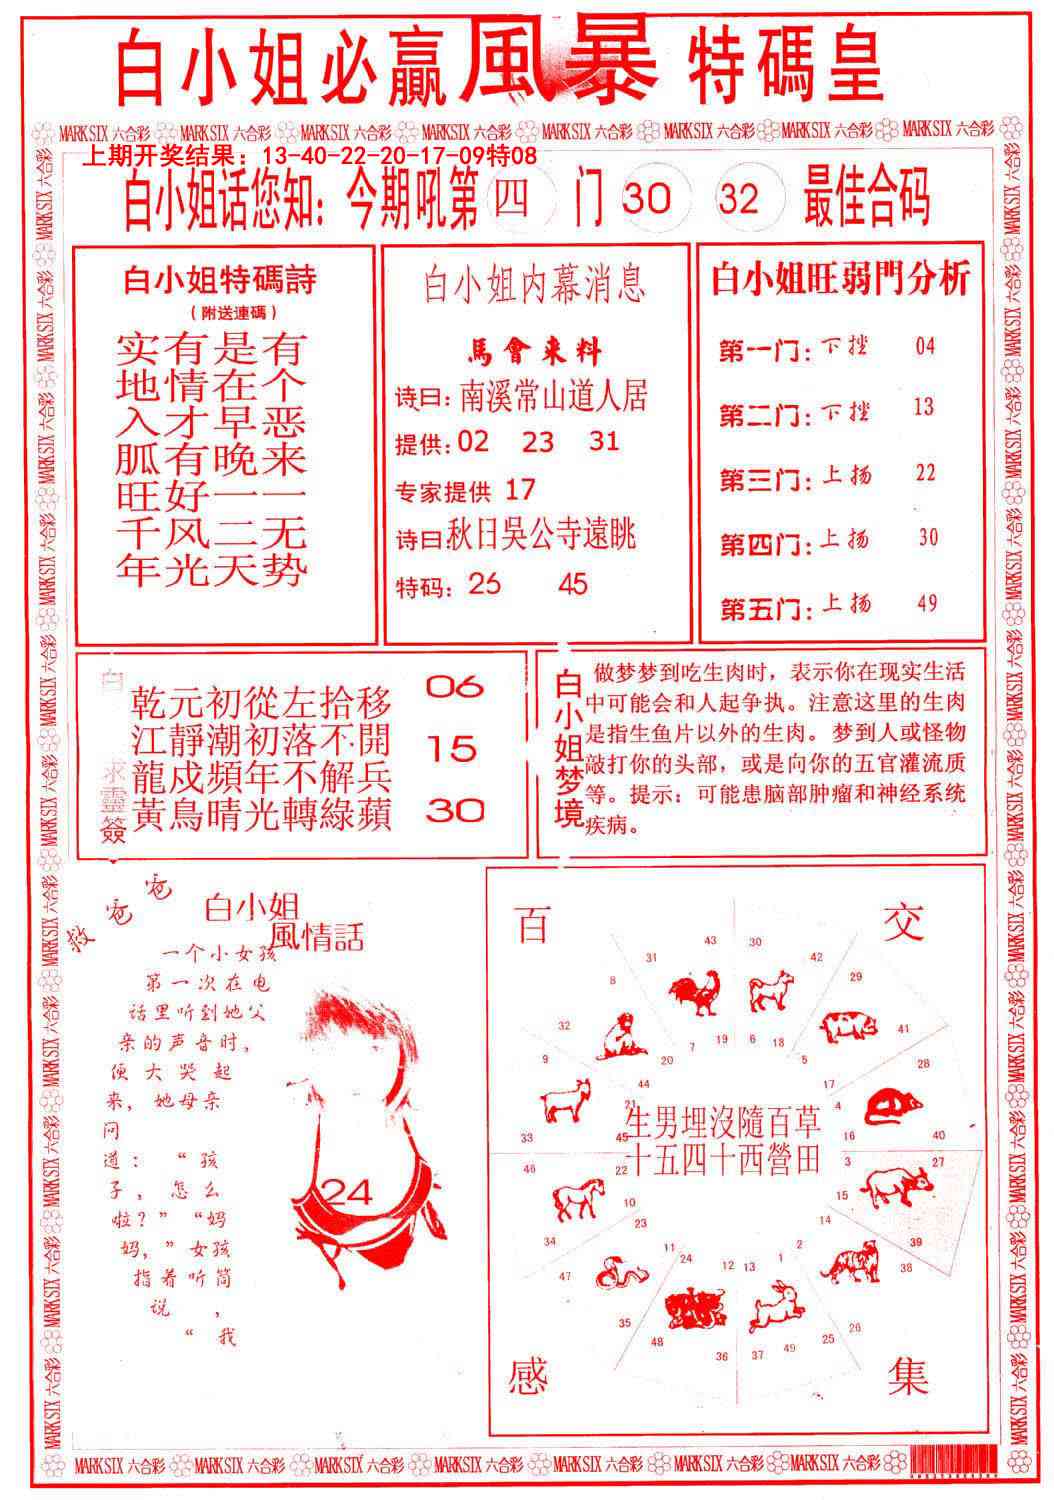 白小姐必贏風暴特碼皇
MARK SIX 六合彩 MARK SIX 六合彩 MARK SIX 六合彩 MARK SIX 六合彩 MARK SIX 六合彩 MARK SIX 六合彩 MARK SIX 六合彩 MARK SIX 六合彩
上期开奖结果：13-40-22-20-17-09特08
白小姐话您知：今期吼第四门 30 32 最佳合码
白小姐特碼詩
（附送連碼）
实有是有
地情在个
入才早恶
胍有晚来
旺好一一
千风二无
年光天势
白小姐内幕消息
馬會来料
诗曰：南溪常山道人居
提供：02 23 31
专家提供 17
诗曰：秋日吳公寺遠眺
特码：26 45
白小姐旺弱門分析
第一门：下挫 04
第二门：下挫 13
第三门：上扬 22
第四门：上扬 30
第五门：上扬 49
白 求靈簽
乾元初從左拾移
江靜潮初落不開
龍成頻年不解兵
黃鳥晴光轉綠蘋
06
15
30
白小姐梦境
做梦梦到吃生肉时，表示你在现实生活
中可能会和人起争执。注意这里的生肉
是指生鱼片以外的生肉。梦到人或怪物
敲打你的头部，或是向你的五官灌流质
等。提示：可能患脑部肿瘤和神经系统
疾病。
救爸爸
白小姐
風情話
一个小女孩
第一次在电
话里听到她父
亲的声音时，
便大哭起
来，她母亲
问
道：“孩
子，怎么
啦？”“妈
妈，”女孩
指着听筒
说，
“我
24
百 交
感 集
43 30
31 42
8 29
32 41
7 19 6 18
20 5
9 28
44 17
21 4
33 45 16 40
生男埋沒隨百草
十五四十西營田
46 22 3 27
10 15
34 23 14 39
47 11 24 12 13 1 2 38
35 26
48 25
36 37 49
MARK SIX 六合彩 MARK SIX 六合彩 MARK SIX 六合彩 MARK SIX 六合彩 MARK SIX 六合彩 MARK SIX 六合彩 MARK SIX 六合彩